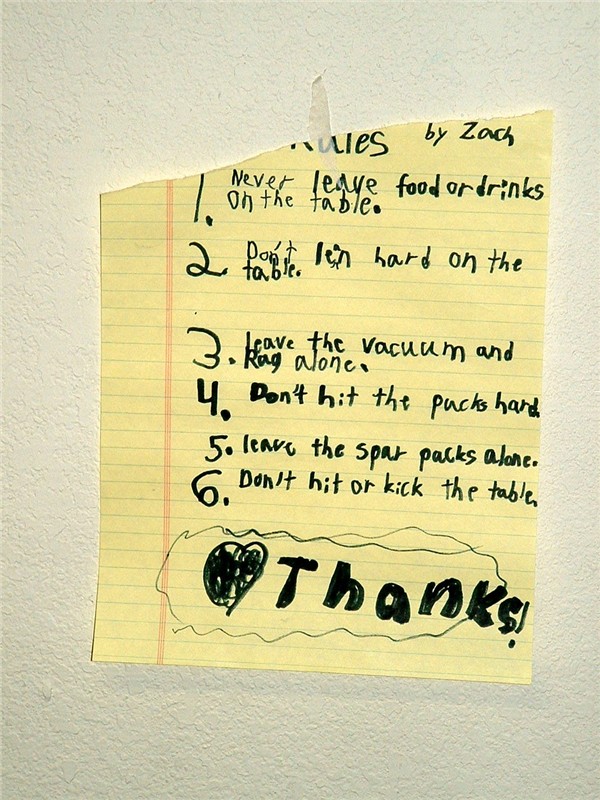 Rules by Zach
1. Never leave food or drinks
on the table.
2 Don't len hard on the
table.
3. leave the vacuum and
Rag alone.
4. Don't hit the pucks hard.
5. leave the spar packs alone.
6. Don't hit or kick the table.
Thanks!